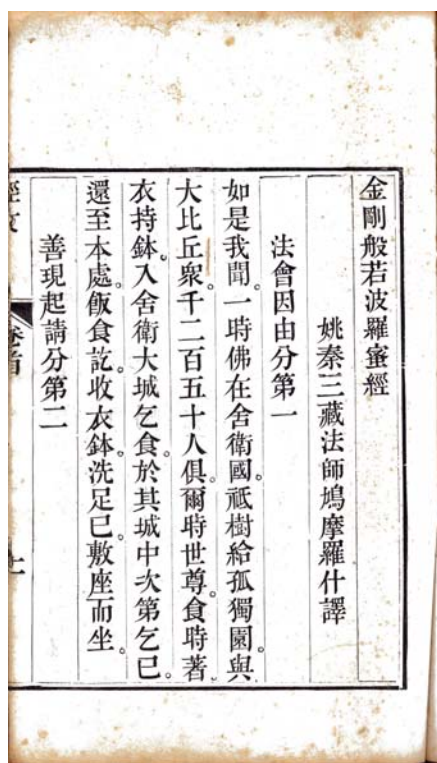 金剛般若波羅蜜經
姚秦三藏法師鳩摩羅什譯
法會因由分第一
如是我聞。一時佛在舍衛國。祇樹給孤獨園。與
大比丘眾。千二百五十人俱。爾時世尊。食時。著
衣持鉢。入舍衛大城乞食。於其城中次第乞已。
還至本處。飯食訖。收衣鉢。洗足已。敷座而坐。
善現起請分第二